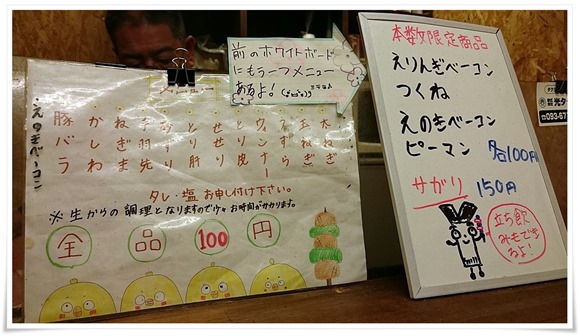 前のホワイトボード
にもう一つメニュー
あるよ！
メニュー
玉ねぎ
ウィンナー
せせり
とり肝
手羽先
ねぎ
かしわ
豚バラ
・えのきベーコン
タレ・塩 お申し付け下さい。
※生からの調理となりますのでお時間がかかります。
全品100円
本数限定商品
えりんぎベーコン
つくね
えのきベーコン
ピーマン 各100円
サガリ 150円
立ち飲
みもできるよ！